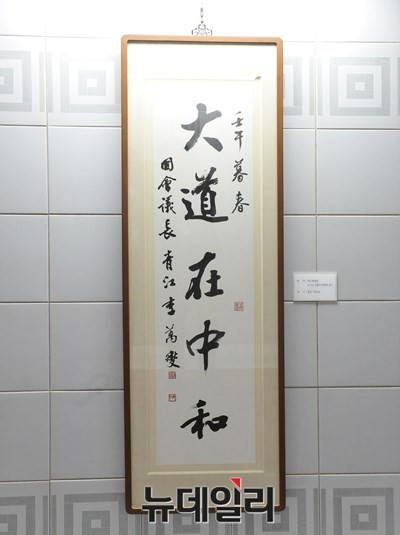 壬午暮春
大道在中和
國會議長 青江 李萬燮
뉴데일리